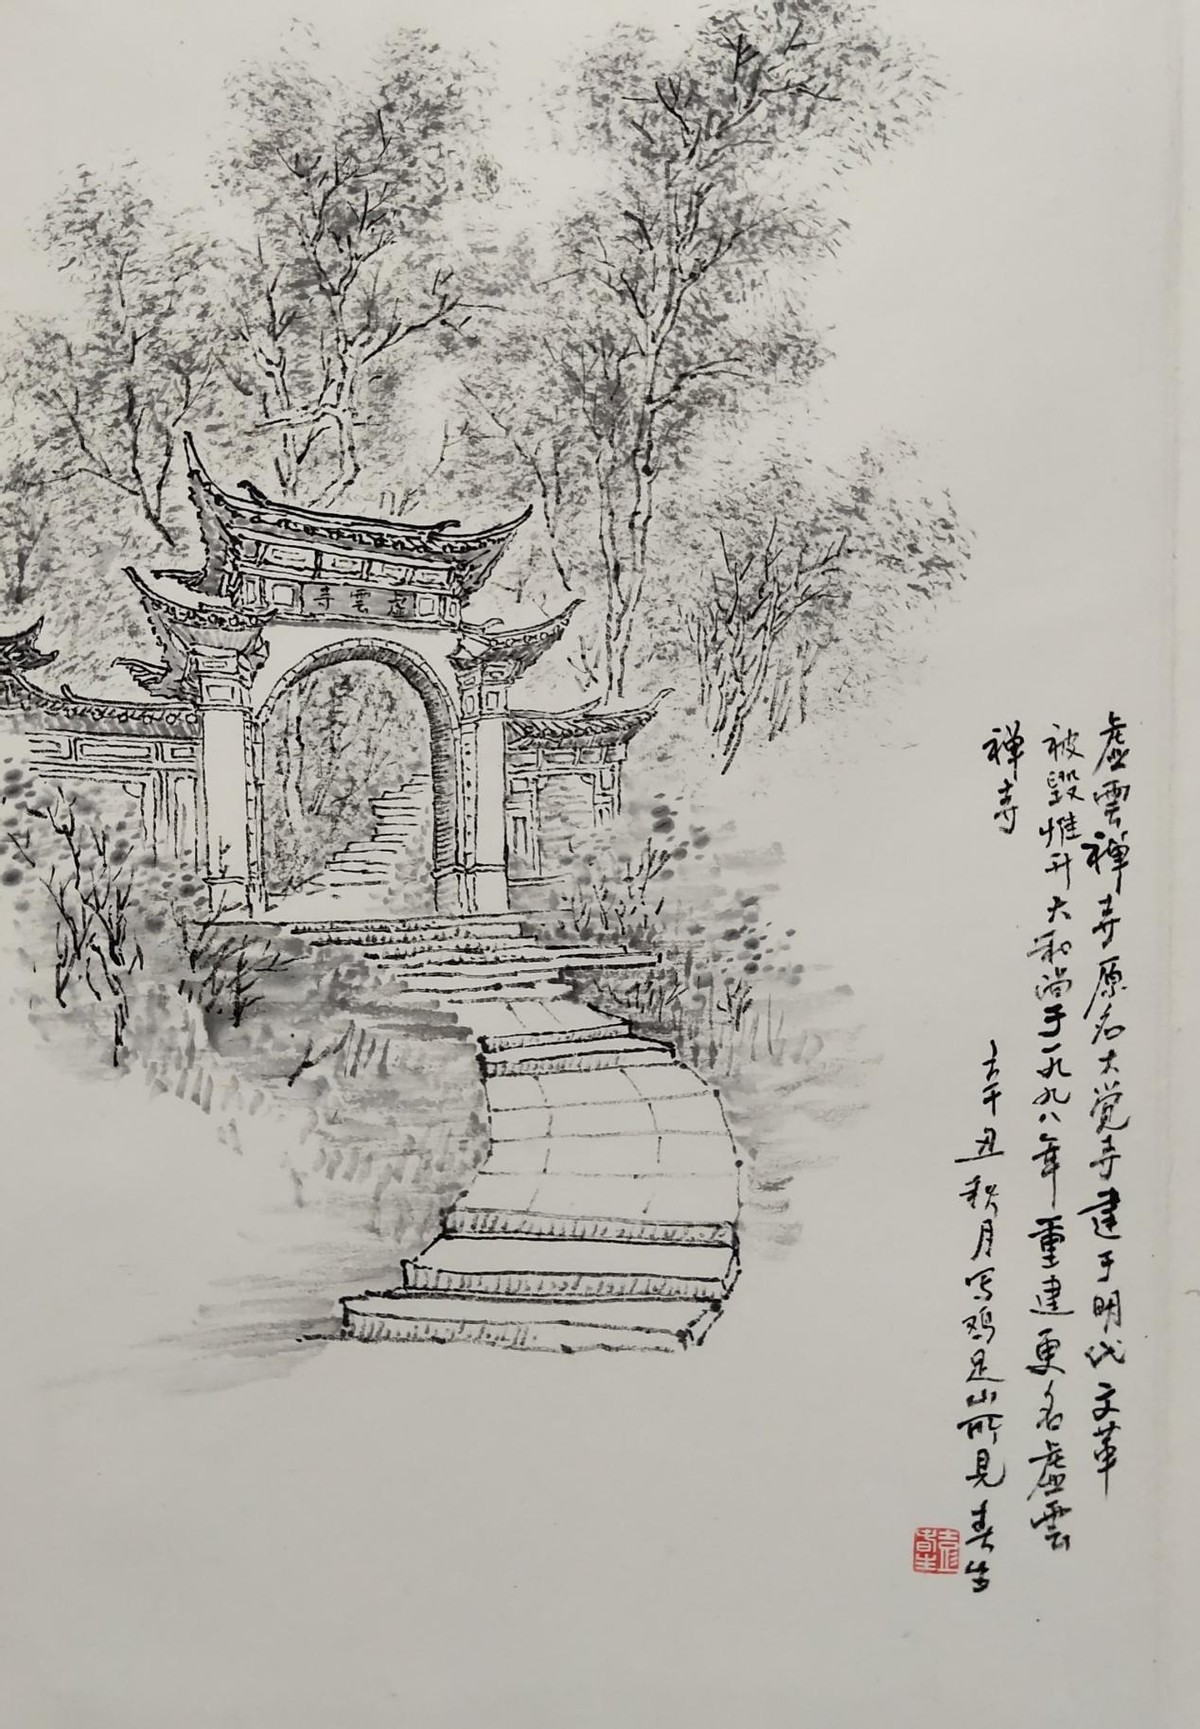 虚雲寺
虚雲禅寺原名大觉寺建于明代文革
被毁惟升大和尚于一九九八年重建更名虚雲
禅寺
辛丑秋月写鸡足山所见春生
袁春生